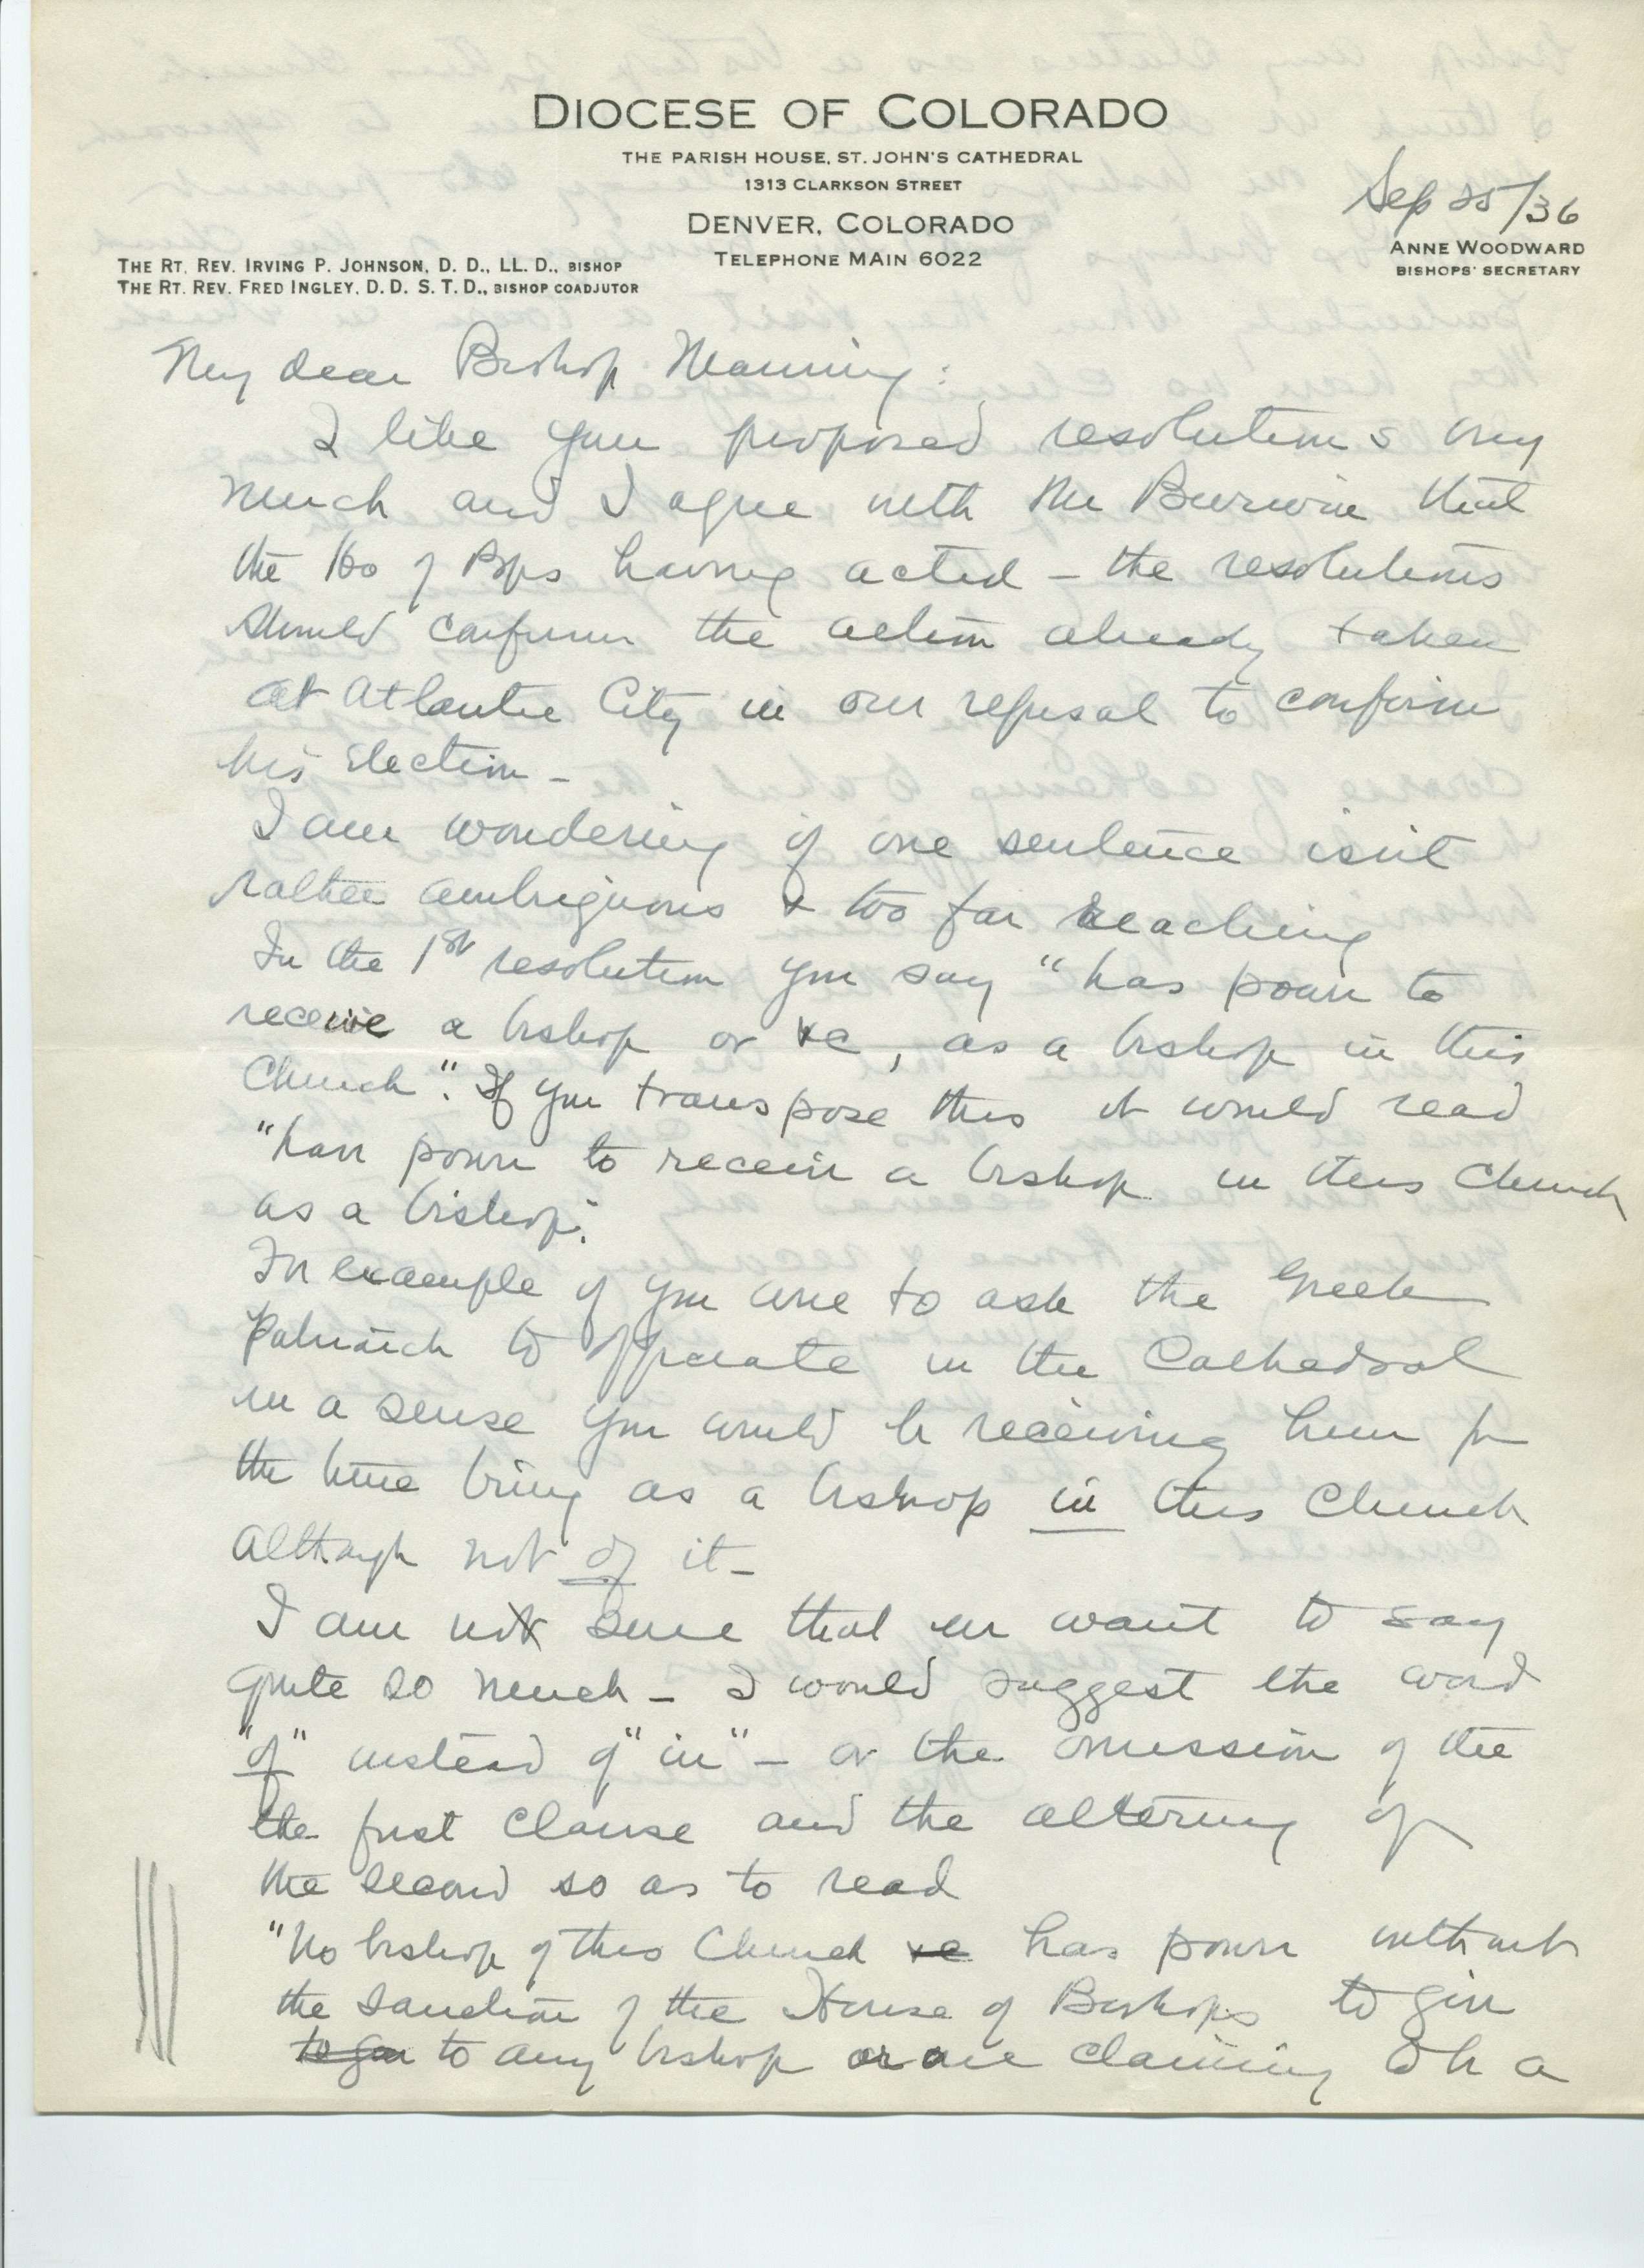 DIOCESE OF COLORADO
THE PARISH HOUSE, ST. JOHN'S CATHEDRAL
1313 CLARKSON STREET
DENVER, COLORADO
TELEPHONE MAIN 6022
Sep 25/36
ANNE WOODWARD
BISHOPS' SECRETARY
THE RT. REV. IRVING P. JOHNSON, D. D., LL. D., BISHOP
THE RT. REV. FRED INGLEY, D. D. S. T. D., BISHOP COADJUTOR
My dear Bishop Manning:
I like your proposed resolutions very
much and I agree with Mr that
the Ho of Bps having acted – the resolutions
should confirm the action already taken
at Atlantic City in our refusal to confirm
his Election –
I am wondering if one sentence isn't
rather ambiguous & too far reaching
In the 1st resolution you say "has power to
receive a bishop or &c, as a bishop in this
Church". If you transpose this it would read
"has power to receive a bishop in this Church
as a bishop".
For example if you were to ask the Greek
Patriarch to in the Cathedral
in a sense you would be receiving him for
the time being as a bishop in this Church
although not of it –
I am not sure that we want to say
quite so much – I would suggest the word
"of" instead of "in" – or the omission of the
the first clause and the altering of
the second so as to read
"No bishop of this Church &c has power without
the sanction of the House of Bishops to give
to give to any bishop or one claiming to be a